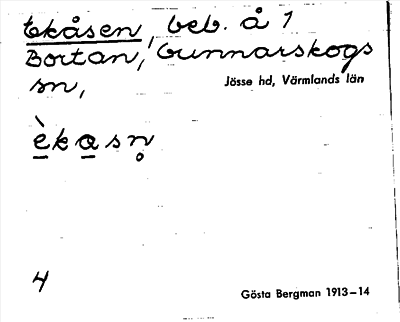 Ekåsen, beb. å 1
Bortan, Gunnarskogs
sn,
Jösse hd, Värmlands län
è̱ka̱sn̥
4
Gösta Bergman 1913–14